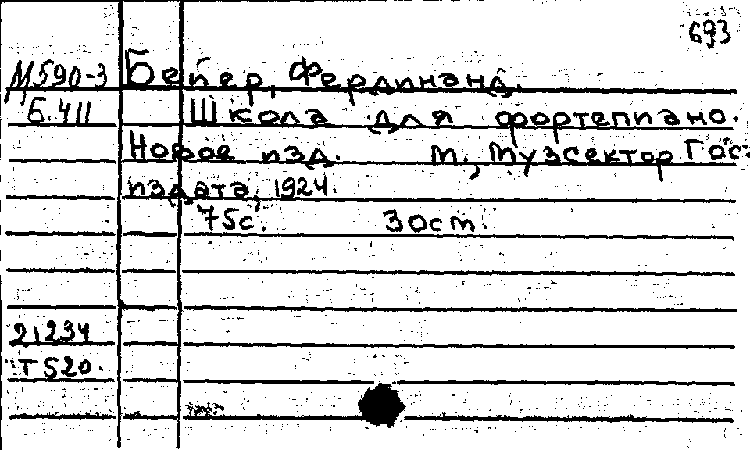 693
М590-3 Бейер, Фердинанд.
Б.411 Школа для фортепиано.
Новое изд. М., Музсектор Гос-
издата, 1924.
75с. 30см.
21234
Т520.